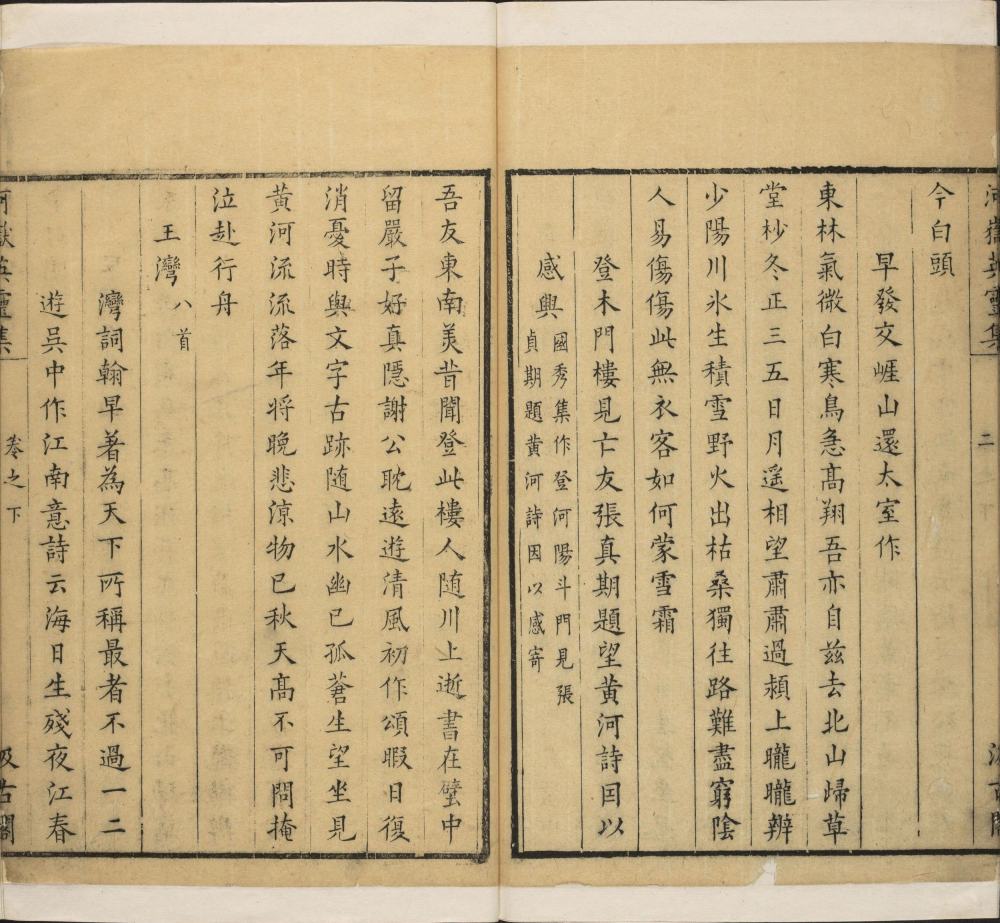 河嶽英靈集
二
汲古閣
今白頭
早發交崖山還太室作
東林氣微白寒鳥急高翔吾亦自茲去北山歸草
堂杪冬正三五日月遥相望肅肅過潁上曨曨辨
少陽川氷生積雪野火出枯桑獨往路難盡窮陰
人易傷傷此無衣客如何蒙雪霜
登木門樓見亡友張真期題望黄河詩因以
感興
國秀集作登河陽斗門見張
貞期題黄河詩因以感寄
吾友東南美昔聞登此樓人随川上逝書在壁中
留嚴子好真隱謝公耽遠遊清風初作頌暇日復
消憂時與文字古跡随山水幽已孤蒼生望坐見
黄河流流落年将晚悲涼物已秋天高不可問掩
泣赴行舟
王灣八首
灣詞翰早著為天下所稱最者不過一二
遊吳中作江南意詩云海日生殘夜江春
河嶽英靈集
卷之下
汲古閣